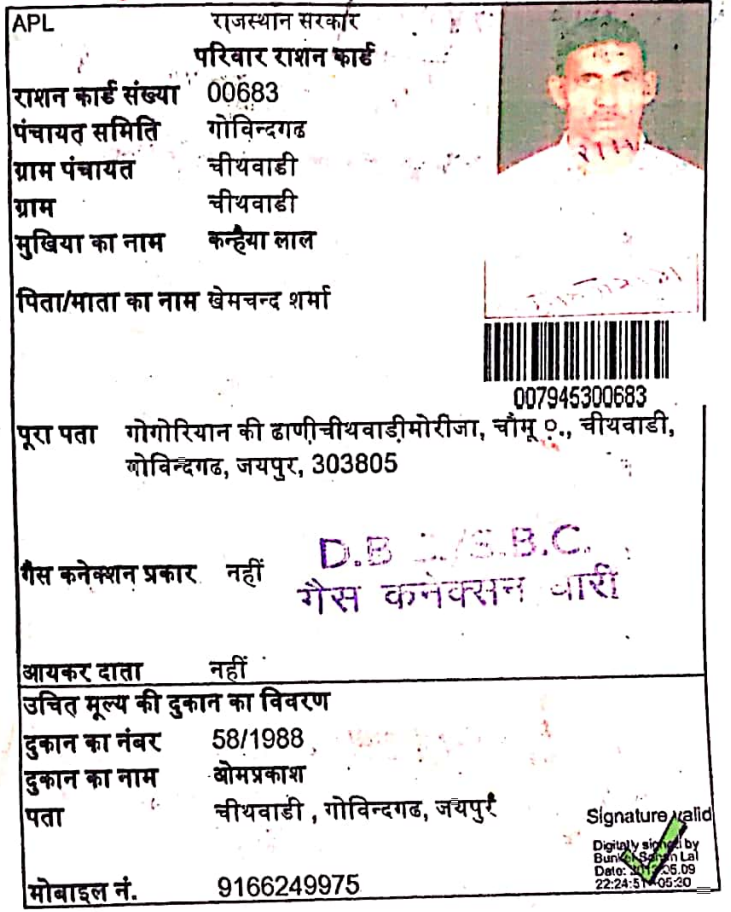 APL राजस्थान सरकार
परिवार राशन कार्ड
राशन कार्ड संख्या 00683
पंचायत समिति गोविन्दगढ
ग्राम पंचायत चीथवाडी
ग्राम चीथवाडी
मुखिया का नाम कन्हैया लाल
पिता/माता का नाम खेमचन्द शर्मा
007945300683
पूरा पता गोगोरियान की ढाणी़चीथवाडी़मोरीजा, चौमू ०़., चीथवाडी,
गोविन्दगढ, जयपुर, 303805
D.B /S.B.C.
गैस कनेक्शन प्रकार नहीं
गैस कनेक्सन धारी
आयकर दाता नहीं
उचित मूल्य की दुकान का विवरण
दुकान का नंबर 58/1988
दुकान का नाम ओमप्रकाश
पता चीथवाडी , गोविन्दगढ, जयपुर
Signature valid
Digitally signed by
Lal
Date: 05.09
22:24:51 05:30
मोबाइल नं. 9166249975